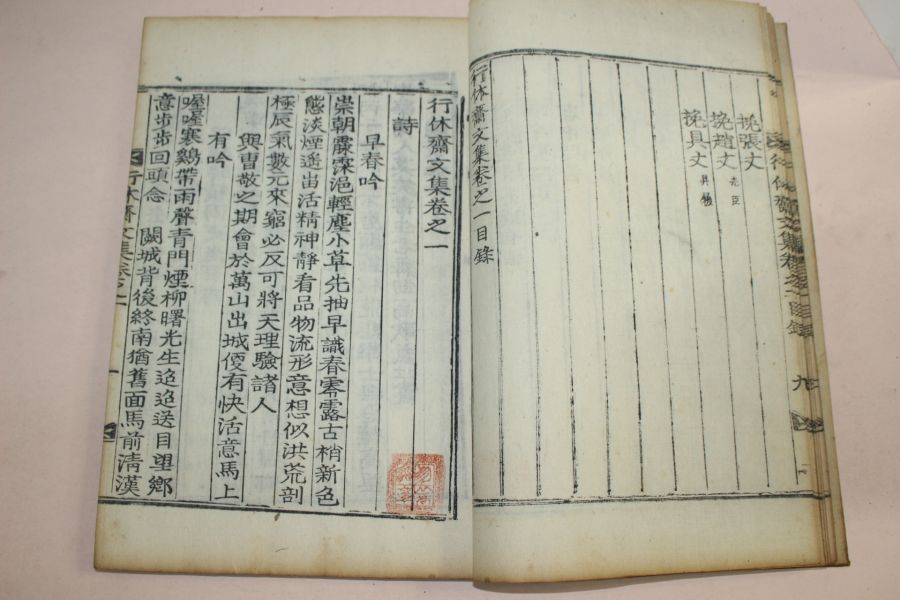 挽張丈
挽趙丈 光臣
挽具丈 昇
行休齋文集卷之一目錄
行休齋文集卷之一
詩
早春吟
崇朝霢霂浥輕塵小草先抽早識春零露古梢新色
態淡煙遙出活精神靜看品物流形意想似洪荒剖
極辰氣數元來窮必反可將天理驗諸人
與曺敬之期會於萬山出城便有快活意馬上
有吟
喔喔寒鷄帶雨聲青門煙柳曙光生迨迨送目望鄉
意步步回頭念 闕城背後終南猶舊面馬前清漢